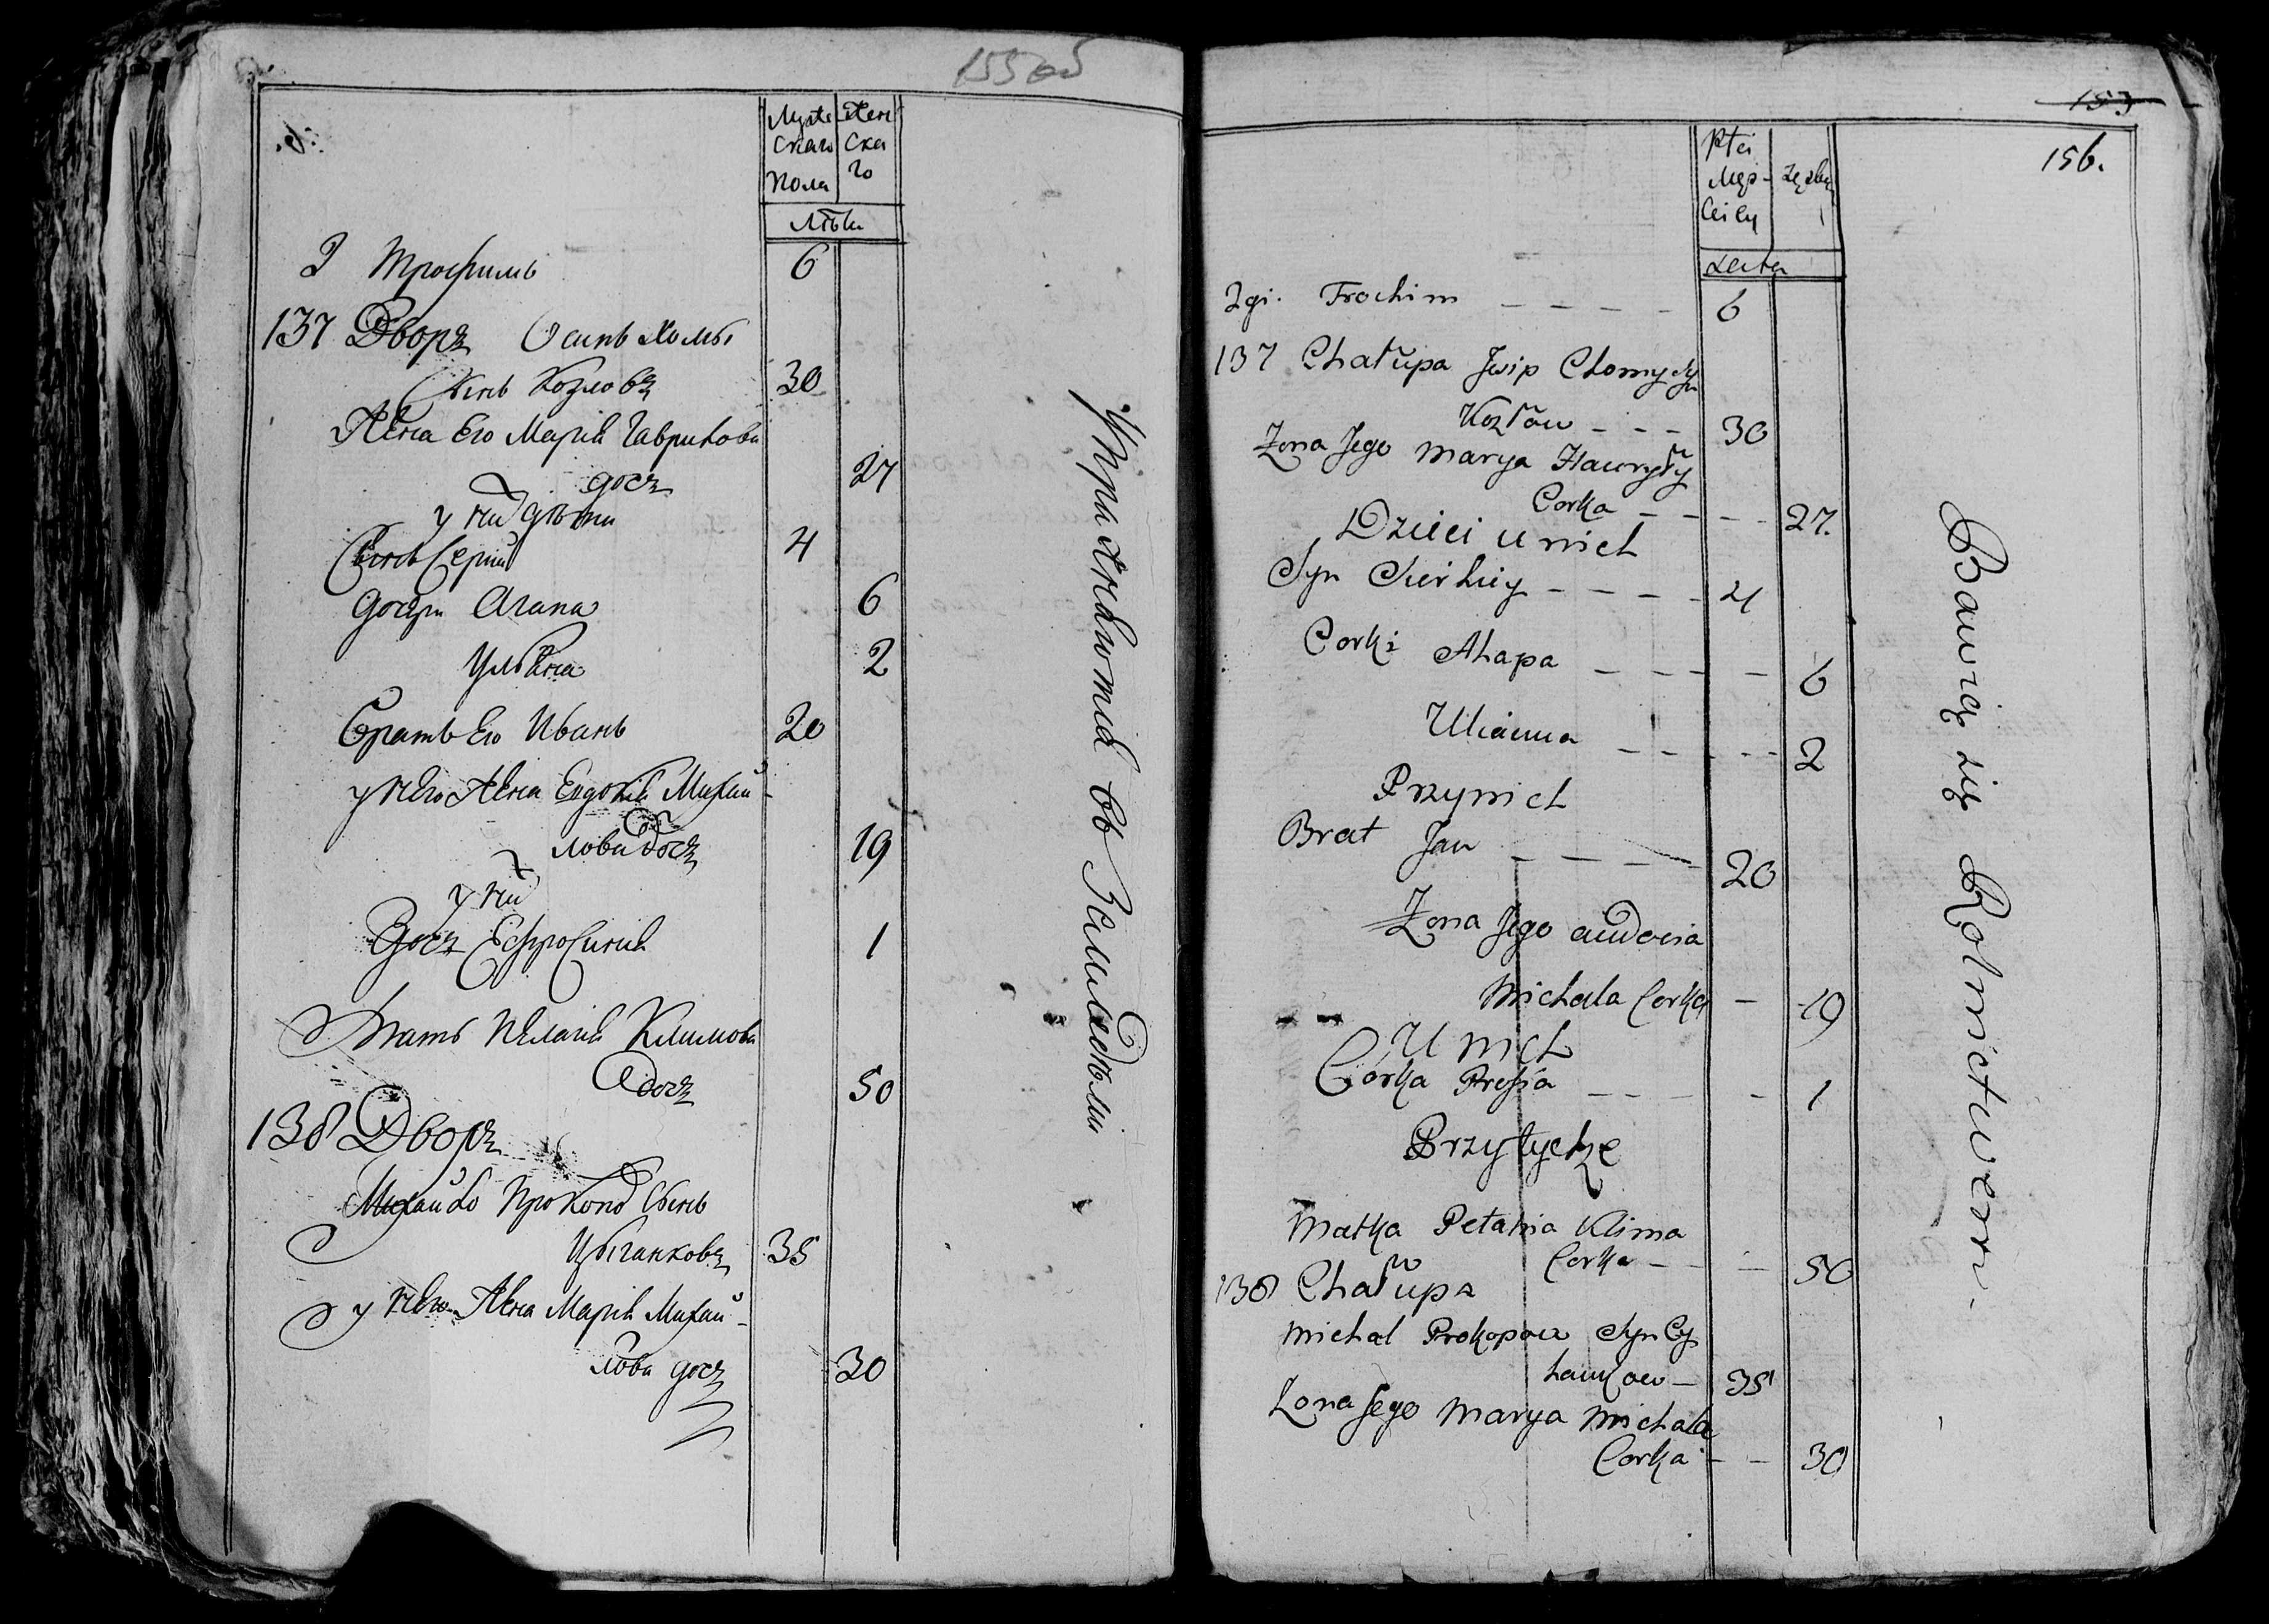 155 об
Муже Жен
скаго ска
пола го
лѣта
2 Трофимъ 6
137 Дворъ Осипъ Хомы
сынъ Козловъ 30
Жена Его Марія Гаврилова
дочь 27
у них дѣти
Сынъ Сергий 4
дочери Агапа 6
Ульяна 2
Братъ Его Иванъ 20
у него Жена Евдокія Михай-
лова дочь 19
у них
Дочь Ефросинія 1
Мать Пелагія Климова
дочь 50
138 Дворъ
Михайло Прокопов Сынъ
Цыганковъ 35
у него Жена Марія Михай-
лова дочь 30
Упражняются въ Земледѣліи
153
156.
Płci
Męz-
Żeńskiey
Lata
2gi. Trochim 6
137 Chałupa Jósip Chomy Syn
Kozłow 30
Żona Jego Marya Hawryły
Corka 27.
Dzieci u nich
Syn Sierhiey 4
Corki Ahapa 6
Ulianna 2
Przy nich
Brat Jan 20
Żona Jego Audocia
Michala Corka 19
U nich
Córka Presia 1
Przy tychże
Matka Pelahia Klima
Corka 50
138 Chałupa
Michał Prokopow Syn Cy
hankow 35
Żona Jego Marya Michala
Corka 30
Bawią się Rolnictwem.